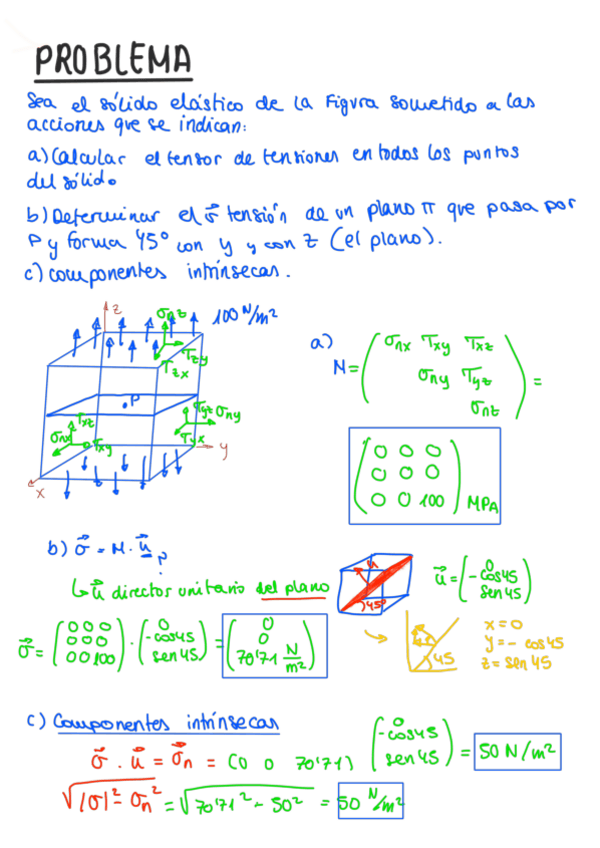 PROBLEMA
Sea el sólido elástico de la Figura sometido a las
acciones que se indican:
a) Calcular el tensor de tensiones en todos los puntos
del sólido
b) Determinar el σ⃗ tensión de un plano π que pasa por
P y forma 45° con y y con z (el plano).
c) componentes intrínsecas.
z σnz 100 N/m²
τzy
τzx
P
τxz
σnx
τxy
τyz σny
τyx
y
x
a)
N = ( σnx τxy τxz
σny τyz
σnz ) =
( 0 0 0
0 0 0
0 0 100 ) MPA
b) σ⃗ = N · u⃗
?
↳ u⃗ director unitario del plano
u
45°
u⃗ = ( 0
-cos45
sen45 )
σ⃗ = ( 0 0 0
0 0 0
0 0 100 ) · ( 0
-cos45
sen 45 ) = ( 0
0
70'71 N/m² )
45
x = 0
y = - cos 45
z = sen 45
c) Componentes intrínsecas
σ⃗ · u⃗ = σ⃗n = (0 0 70'71) ( 0
-cos45
sen 45 ) = 50 N/m²
√|σ|² - σn² = √70'71² - 50² = 50 N/m²